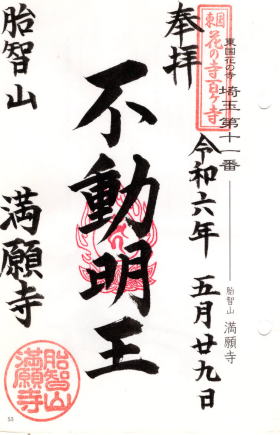 東国花の寺 埼玉第十一番
胎智山 満願寺
東国
花の寺百ヶ寺
奉拝
令和六年 五月廿九日
不動明王
胎智山
満願寺
胎智山
満願寺
53